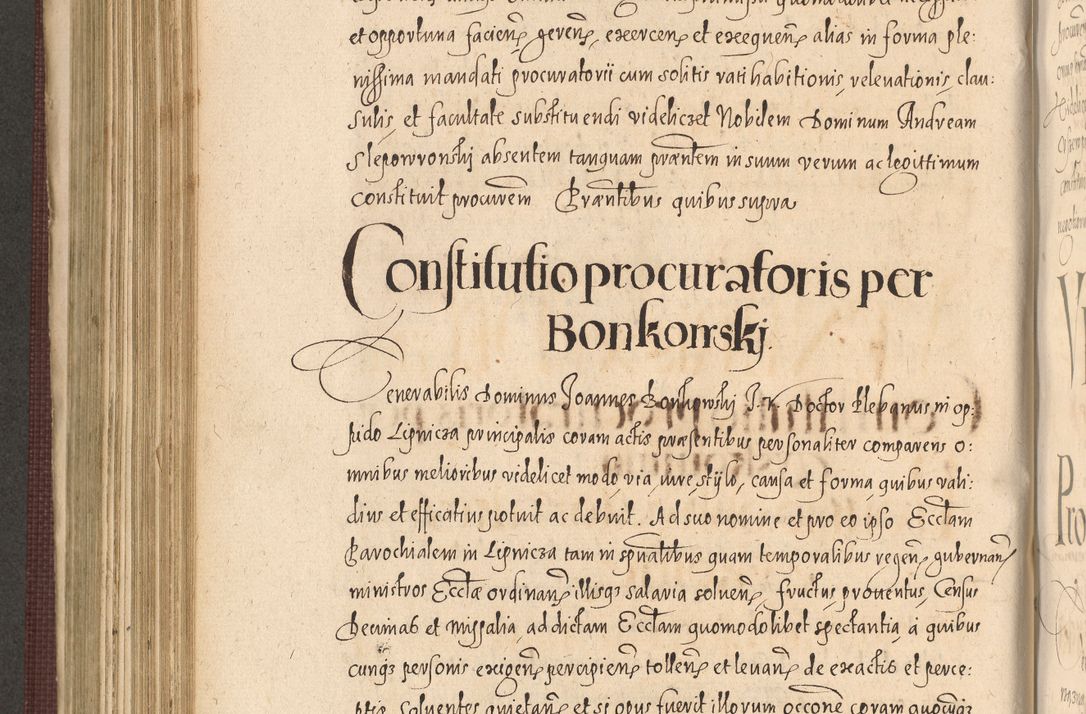 et opportuna facien geren exercen et exequen alias in forma ple:
nissima mandati procuratorii cum solitis ratihabitionis, relevationis, clau:
sulis, et facultate substituendi videliczet Nobilem Dominum Andream
Slepowronskij absentem tanquam praesentem in suum verum ac legittimum
constituit procurem Praesentibus quibus supra
Constitutio procuratoris per
Bonkowskj.
Venerabilis Dominus Joannes Bonkowskij J. V. Doctor Plebanus in op:
pido Lipnicza principalis coram actis praesentibus personaliter comparens o:
mnibus melioribus videlicet modo, via, iure, stylo, causa et forma, quibus vali:
dius et efficatius potuit ac debuit. Ad suo nomine et pro eo ipso Ecctam
Parochialem in Lipnicza tam in spualibus quam temporalibus regen, gubernan
ministros Ecctae ordinan, illisq3 salaria soluen, fructus, prouentus, Census
Decimas et Missalia, ad dictam Ecctam quomodolibet spectantia, à quibus
cunq3 personis exigen percipien tollen et levan de exactis et perce:
ptis soluentes quietan et si opus fuerit illorum occone coram quocunq3